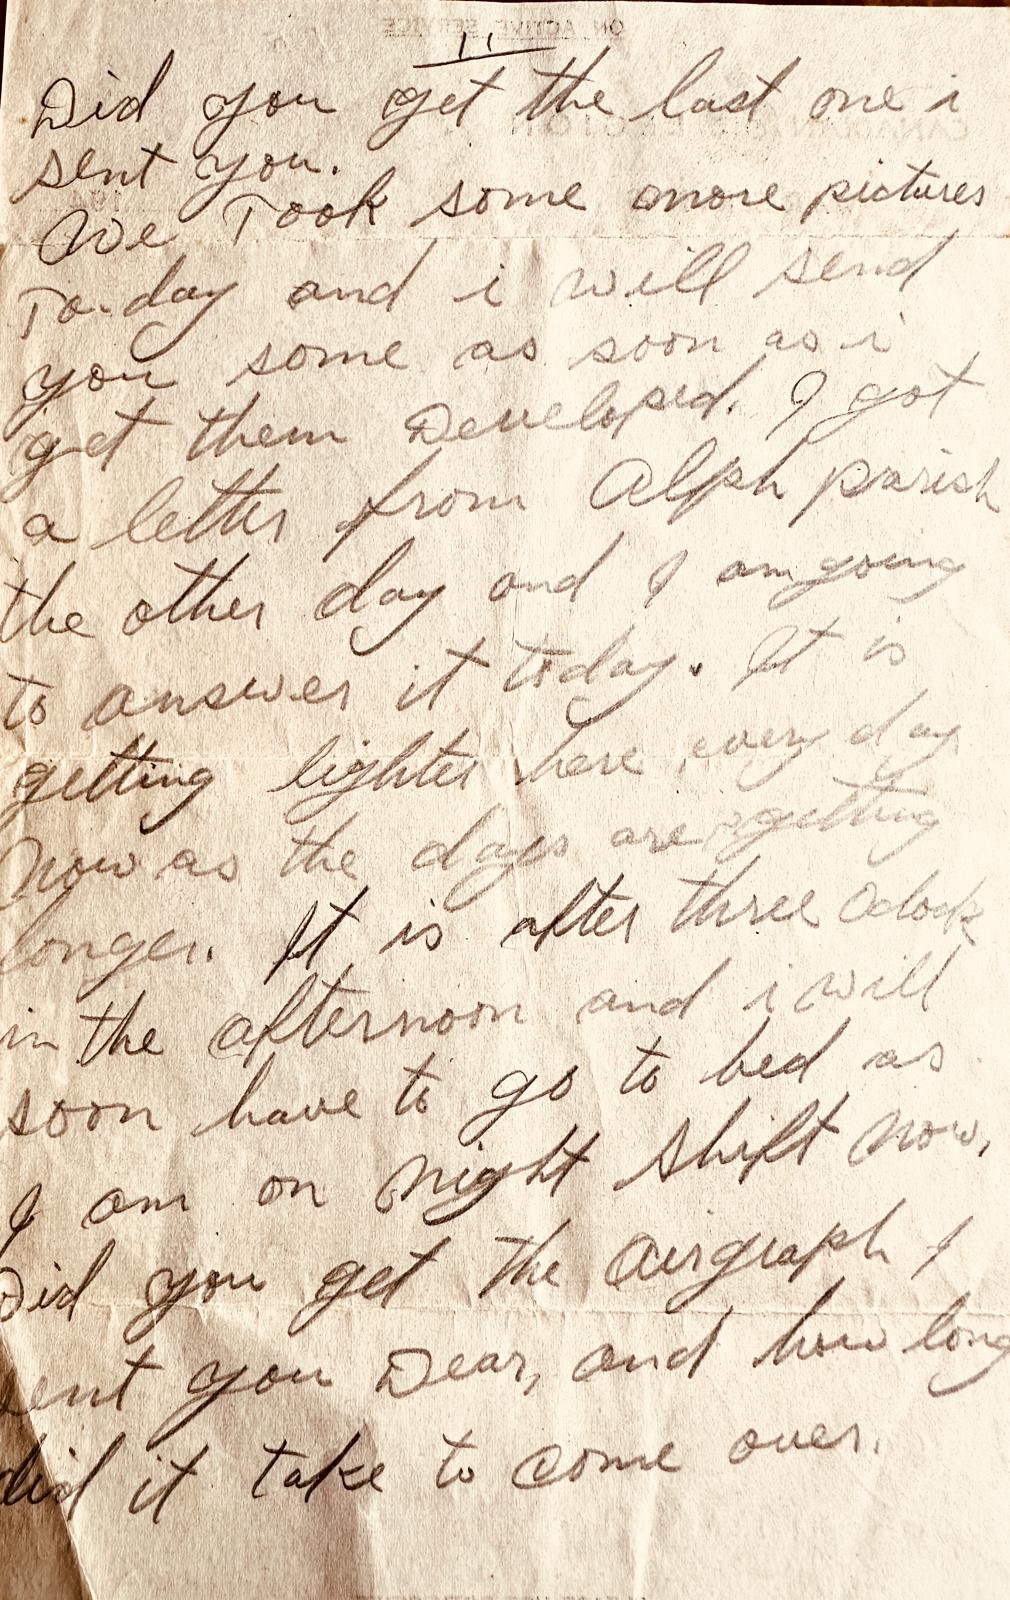 ON ACTIVE SERVICE
11
Did you get the last one i
sent you.
We Took some more pictures
To-day and i will send
you some as soon as i
get them Developed. I got
a letter from Alph parish
the other day and I am going
to answer it today. It is
getting lighter here every day
Now as the days are getting
longer. It is after three Oclock
in the afternoon and i will
soon have to go to bed as
I am on Night shift Now.
Did you get the Airgraph I
sent you Dear, and how long
did it take to come over.